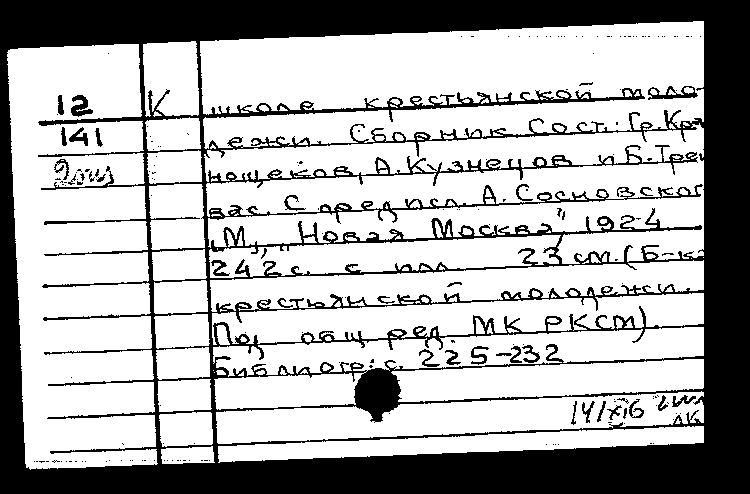 12 К школе крестьянской моло-
141 дежи. Сборник Сост.: Гр. Кра
2 экз нощеков, А. Кузнецов и Б. Тре
вас. С предисл. А. Сосновског
М., "Новая Москва", 1924
242 с. с илл. 23 см. (Б-ка
крестьянской молодежи.
Под общ. ред. МК РКСМ).
Библиогр.: с. 225-232
14/XI6